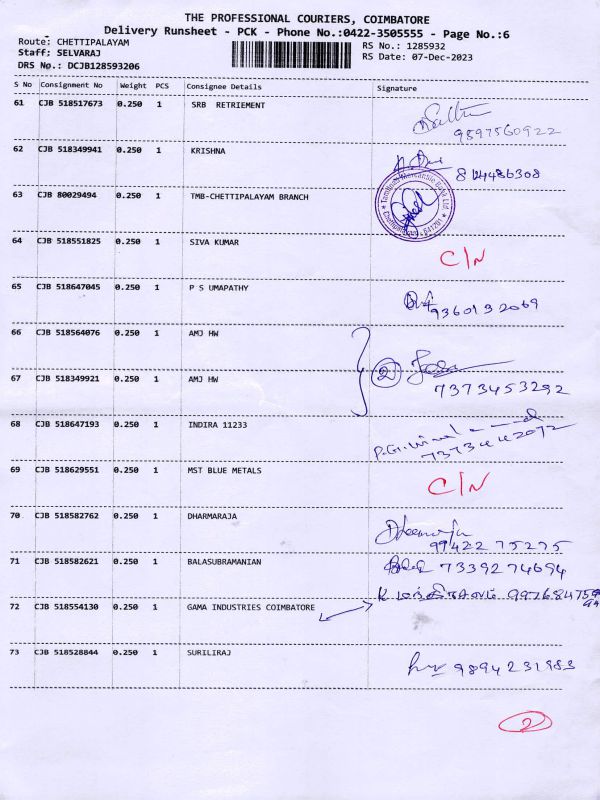 THE PROFESSIONAL COURIERS, COIMBATORE
Delivery Runsheet - PCK - Phone No.:0422-3505555 - Page No.:6
Route: CHETTIPALAYAM
RS No.: 1285932
Staff: SELVARAJ
RS Date: 07-Dec-2023
DRS No.: DCJB128593206
S No Consignment No Weight PCS Consignee Details Signature
61 CJB 518517673 0.250 1 SRB RETRIEMENT
9597560922
62 CJB 518349941 0.250 1 KRISHNA
63 CJB 80029494 0.250 1 TMB-CHETTIPALAYAM BRANCH
Tamilnad Mercantile Bank Ltd
64 CJB 518551825 0.250 1 SIVA KUMAR C/N
65 CJB 518647045 0.250 1 P S UMAPATHY
9360132069
66 CJB 518564076 0.250 1 AMJ HW
2
67 CJB 518349921 0.250 1 AMJ HW
7373453292
68 CJB 518647193 0.250 1 INDIRA 11233
7373442072
69 CJB 518629551 0.250 1 MST BLUE METALS C/N
70 CJB 518582762 0.250 1 DHARMARAJA
99422 75275
71 CJB 518582621 0.250 1 BALASUBRAMANIAN
7339274694
72 CJB 518554130 0.250 1 GAMA INDUSTRIES COIMBATORE
73 CJB 518528844 0.250 1 SURILIRAJ
9894231983
2